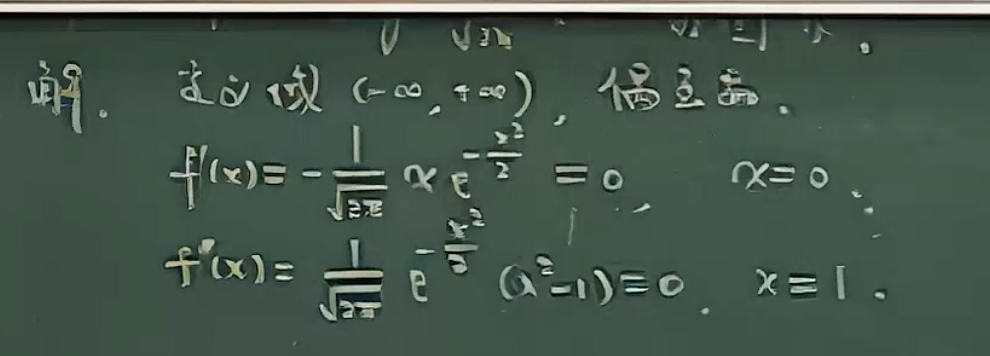 √2π
解. 定义域 (-∞, +∞), 偶函数.
f'(x) = - 1/√2π x e^{-x²/2} = 0, x = 0.
f''(x) = 1/√2π e^{-x²/2} (x²-1) = 0. x = 1.